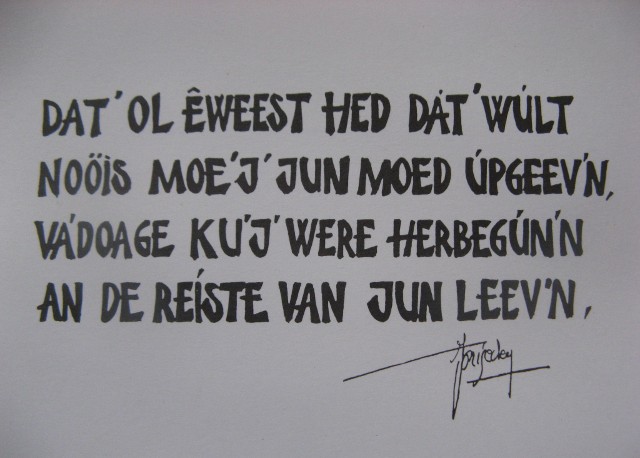 DAT' OL ÊWEEST HED DÁT' WÚLT
NOÖÌS MOE'J' JUN MOED ÚPGEEV'N,
VA'DOAGE KU'J' WERE HERBEGÚN'N
AN DE REÍSTE VAN JUN LEEV'N,